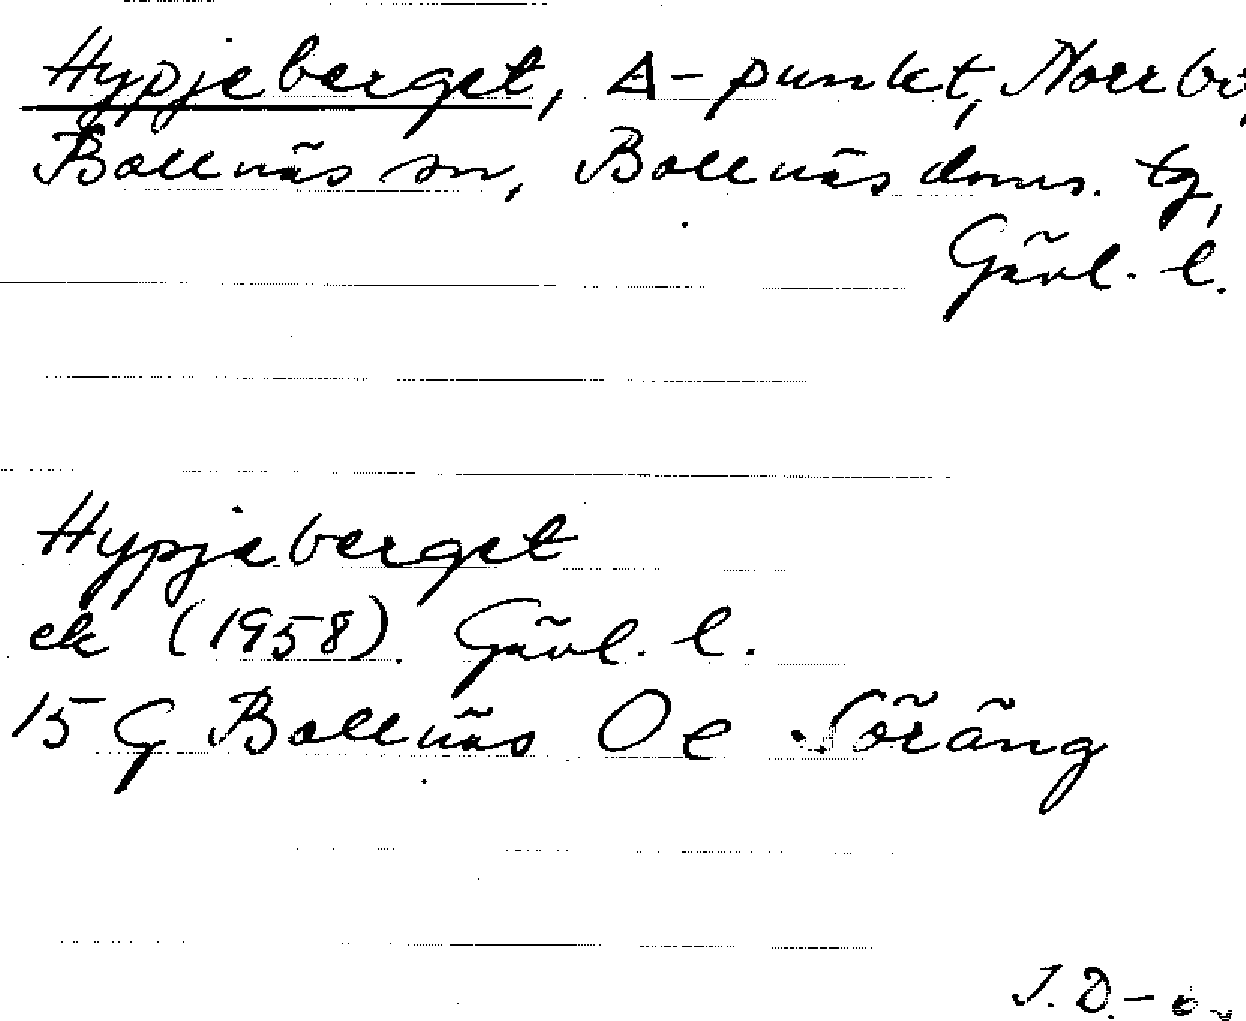 Hypjeberget, Δ-punkt, Norrbo,
Bollnäs sn, Bollnäs doms. tg,
Gävl. l.
Hypjeberget
ek (1958). Gävl. l.
15 G Bollnäs Oe Söräng
J. D.-ö